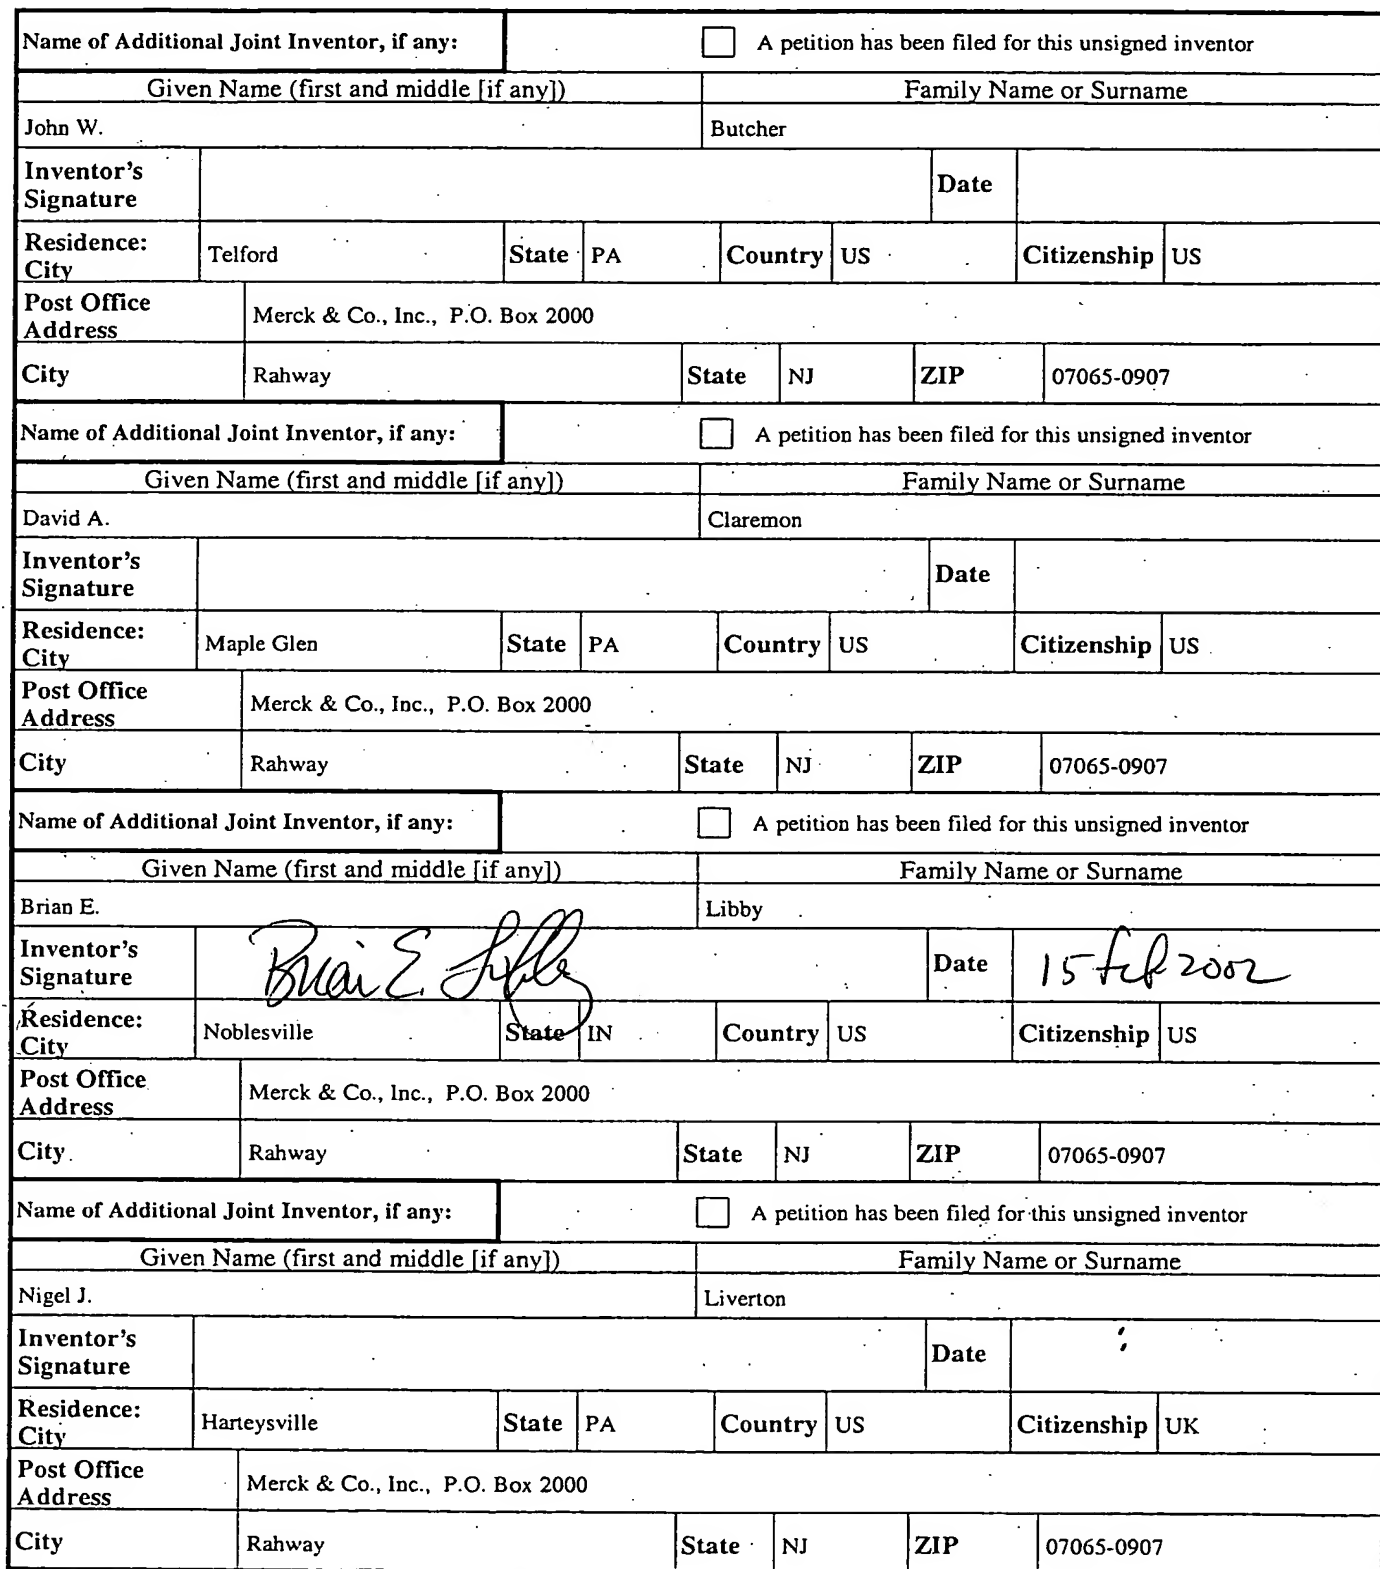 Name of Additional Joint Inventor, if any: A petition has been filed for this unsigned inventor
Given Name (first and middle [if any]) Family Name or Surname
John W. Butcher
Inventor's Signature Date
Residence: City Telford State PA Country US Citizenship US
Post Office Address Merck & Co., Inc., P.O. Box 2000
City Rahway State NJ ZIP 07065-0907
Name of Additional Joint Inventor, if any: A petition has been filed for this unsigned inventor
Given Name (first and middle [if any]) Family Name or Surname
David A. Claremon
Inventor's Signature Date
Residence: City Maple Glen State PA Country US Citizenship US
Post Office Address Merck & Co., Inc., P.O. Box 2000
City Rahway State NJ ZIP 07065-0907
Name of Additional Joint Inventor, if any: A petition has been filed for this unsigned inventor
Given Name (first and middle [if any]) Family Name or Surname
Brian E. Libby
Inventor's Signature Brian E. Libby Date 15 Feb 2002
Residence: City Noblesville State IN Country US Citizenship US
Post Office Address Merck & Co., Inc., P.O. Box 2000
City Rahway State NJ ZIP 07065-0907
Name of Additional Joint Inventor, if any: A petition has been filed for this unsigned inventor
Given Name (first and middle [if any]) Family Name or Surname
Nigel J. Liverton
Inventor's Signature Date
Residence: City Harteysville State PA Country US Citizenship UK
Post Office Address Merck & Co., Inc., P.O. Box 2000
City Rahway State NJ ZIP 07065-0907